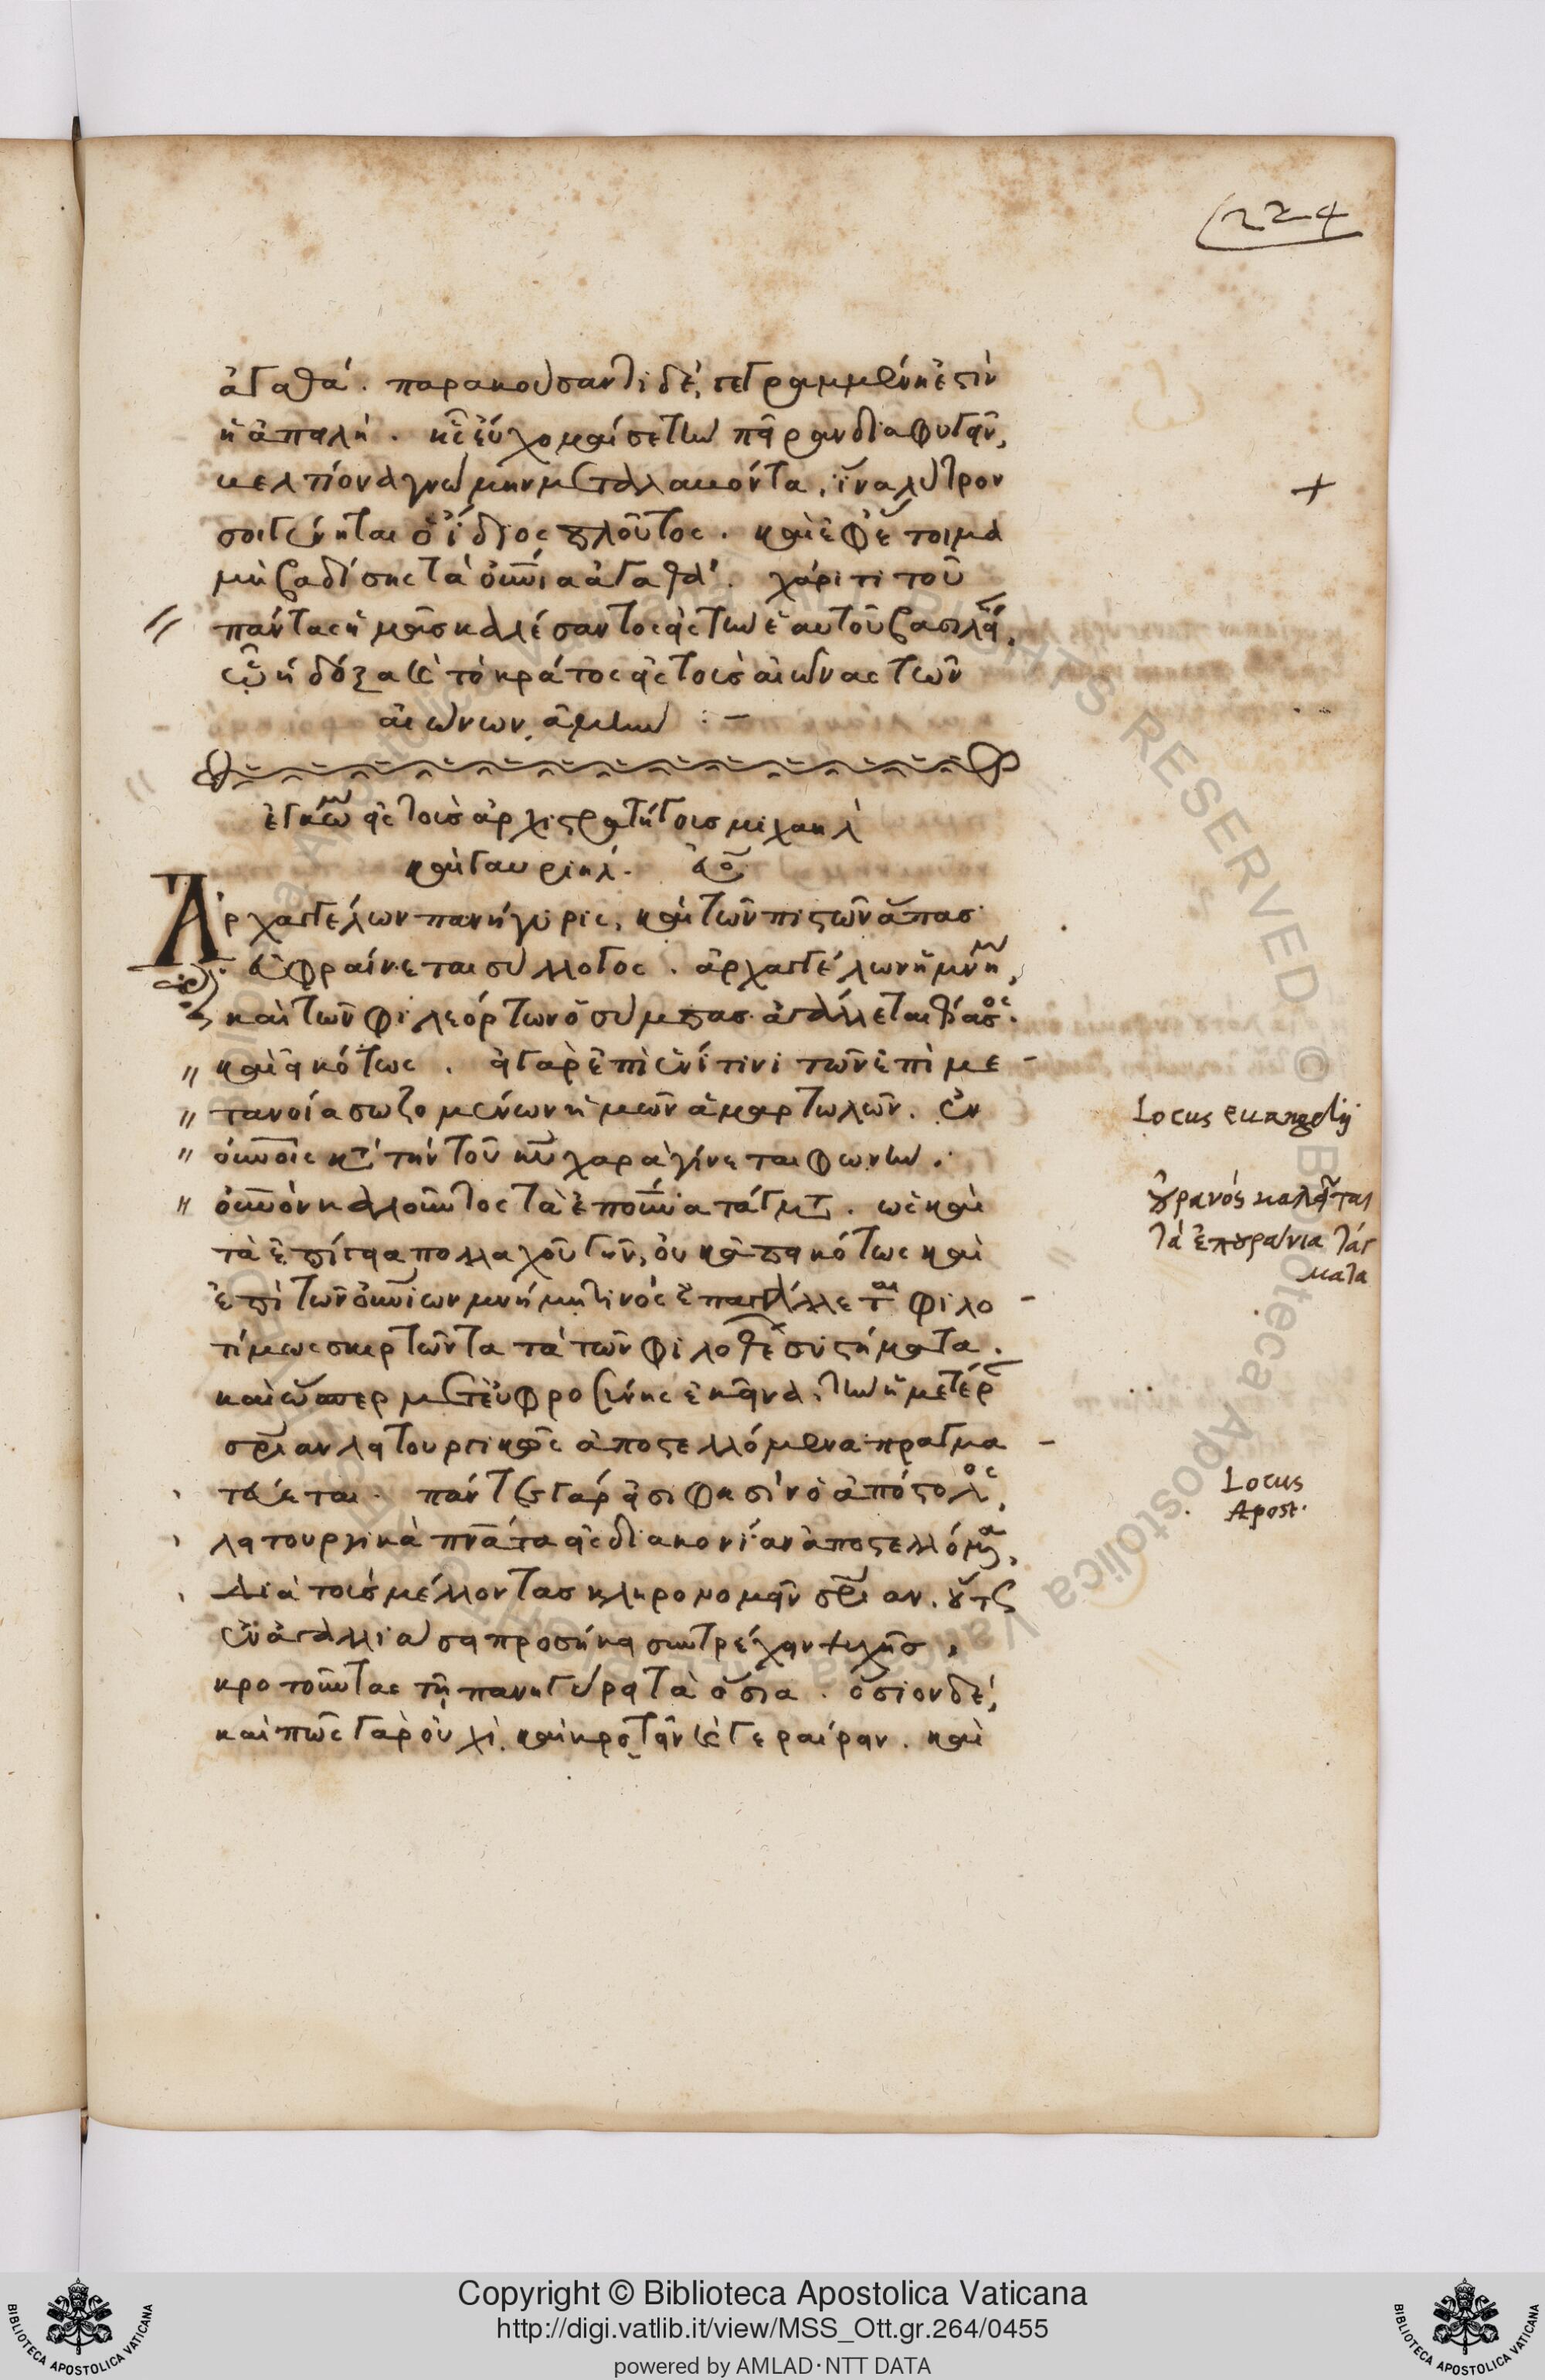 224
ἀγαθά. παρακούσαντι δέ, γεγραμμένη ἐστὶν
ἡ ἀπειλή. κ(αὶ) εὔχομαί σε τὴν πεῖραν διαφυγεῖν,
βελτίονα γνώμην μεταλαβόντα. ἵνα λύτρον
σοι γένηται ὁ ἴδιος πλοῦτος. καὶ ἐφ' ἕτοιμα
μὴ βαδίσῃς τὰ οὐνια ἀγαθά. χάριτι τοῦ
πάντας ἡμᾶς καλέσαντος εἰς τὴν ἑαυτοῦ βασιλείαν.
ᾧ ἡ δόξα κ(αὶ) τὸ κράτος εἰς τοὺς αἰῶνας τῶν
αἰώνων, ἀμήν :-
ἐγκώμ εἰς τοὺς ἀρχιστρατήγους μιχαὴλ
καὶ γαυριήλ.
Ἀρχαγγέλων πανήγυρις, καὶ τῶν πιστῶν ἅπας
εὐφραίνεται σύλλογος. ἀρχαγγέλων ἡ μνήμη,
καὶ τῶν φιλεόρτων ὁ σύμπας ἀγάλλεται θίασος.
καὶ εἰκότως. εἰ γὰρ ἐπὶ ἑνί τινι τῶν ἐπὶ με-
τανοία σωζομένων ἡμῶν ἁμαρτωλῶν. ἐν
οὐνοῖς κατὰ τὴν τοῦ κυ χαρὰ γίνεται φωνήν.
οὐνὸν καλοῦντος τὰ ἐπουνια τάγματα. ὡς καὶ
τὰ ἐπίγεια πολλαχοῦ γῆν, οὐκ ἀπεικότως καὶ
ἐπὶ τῶν οὐνίων μνήμη τινὸς ἐπαγάλλεται φιλο-
τίμως σκιρτῶντα τὰ τῶν φιλοθέων συστήματα.
καὶ ὥσπερ μετ' εὐφροσύνης ἐκεῖνα, τὴν ἡμετέραν
σριαν λειτουργικῶς ἀποστελλόμενα πραγμα-
τεύεται. πάντες γάρ εἰσι φησὶν ὁ ἀπόστολος,
λειτουργικὰ πνατα εἰς διακονίαν ἀποστελλόμενα,
διὰ τοὺς μέλλοντας κληρονομεῖν σριαν. οὕτως
ἐν ἀγαλλιάσει προσήκει συντρέχειν ἡμᾶς,
κροτοῦντας τῇ πανηγύρει τὰ ὅσια. ὅσιον δέ,
καὶ πῶς γὰρ οὐχί. καὶ κροτεῖν κ(αὶ) γεραίρειν. καὶ
Locus euangelij
οὐρανός καλεῖται
τά ἐπουράνια τάγ
ματα
Locus
Apost.
Copyright © Biblioteca Apostolica Vaticana
http://digi.vatlib.it/view/MSS_Ott.gr.264/0455
powered by AMLAD·NTT DATA
BIBLIOTECA APOSTOLICA VATICANA
BIBLIOTECA APOSTOLICA VATICANA